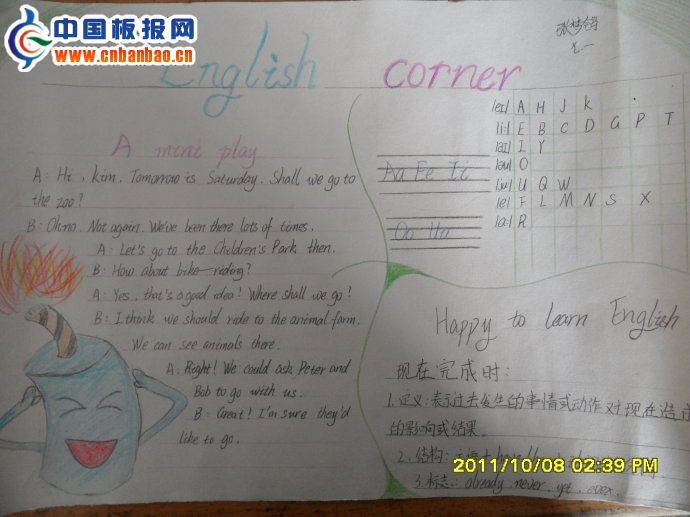 中国板报网
www.cnbanbao.cn
English corner
A mini play
A: Hi, Kim. Tomorrow is Saturday. Shall we go to
the zoo?
B: Oh no. Not again. We've been there lots of times.
A: Let's go to the Children's Park then.
B: How about bike-riding?
A: Yes, that's a good idea! Where shall we go?
B: I think we should ride to the animal farm.
We can see animals there.
A: Right! We could ask Peter and
Bob to go with us.
B: Great! I'm sure they'd
like to go.
Aa Ee Ii
Oo Uu
[ei] A H J K
[i:] E B C D G P T
[ai] I Y
[əu] O
[ju:] U Q W
[e] F L M N S X
[a:] R
Happy to learn English
现在完成时:
1.定义:表示过去发生的事情或动作对现在造
的影响或结果.
2.结构:
3.标志: already, never, yet, ever.
2011/10/08 02:39 PM